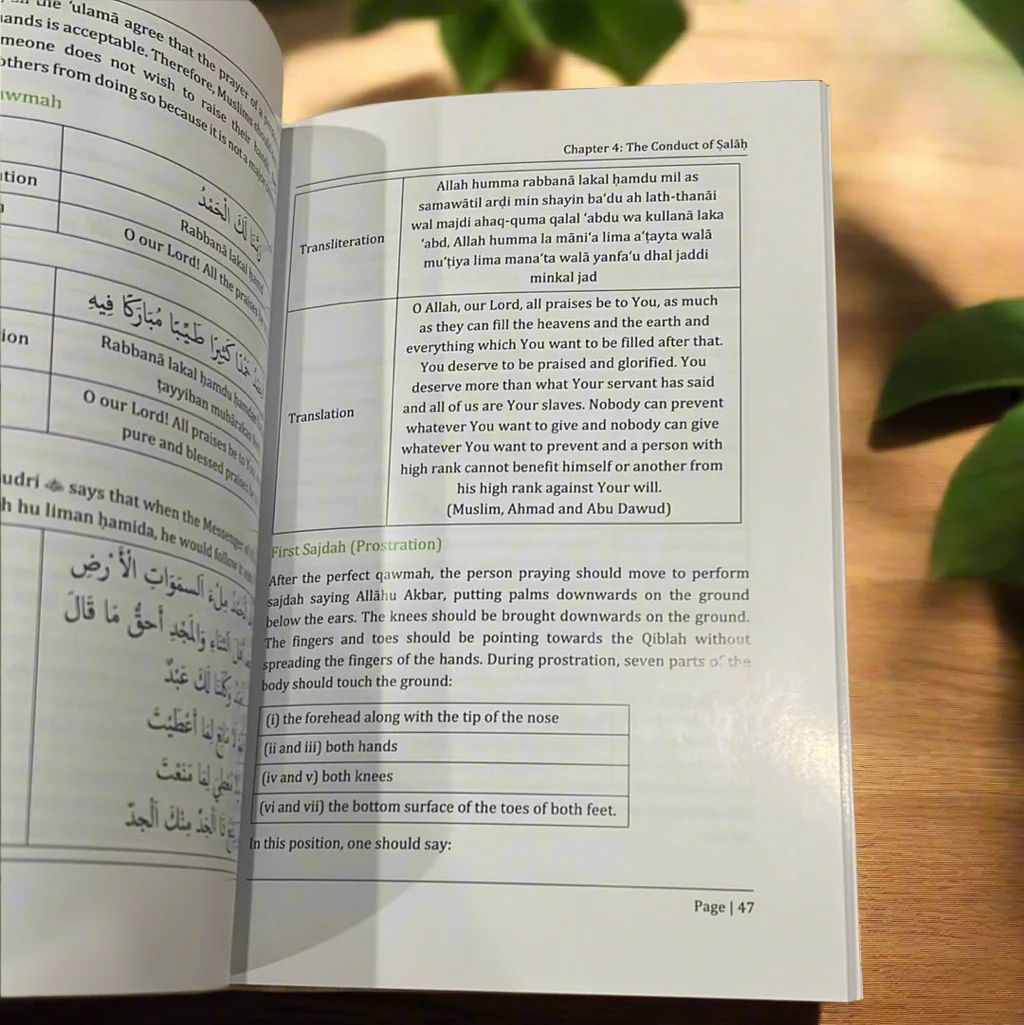 the ‘ulamā agree that the prayer of a
hands is acceptable. Therefore, Muslims should
someone does not wish to raise their hands,
others from doing so because it is not a major
awmah
رَبَّنَا لَكَ الْحَمْدُ
tion
Rabbanā lakal ḥamd
O our Lord! All the praises be
كَثِيْرًا طَيِّبًا مُبَارَكًا فِيهِ
ion
Rabbanā lakal ḥamdu ḥamdan
ṭayyiban mubārakan
O our Lord! All praises be to You
pure and blessed praises be
udrī says that when the Messenger of
h hu liman ḥamida, he would follow it
مِلْءَ السَّمَوَاتِ الْأَرْضِ
وَالْمَجْدِ أَحَقُّ مَا قَالَ
وَكُلُّنَا لَكَ عَبْدٌ
لِمَا أَعْطَيْتَ
لِمَا مَنَعْتَ
الْجَدِّ مِنْكَ الْجَدّ
Chapter 4: The Conduct of Ṣalāḥ
Transliteration
Allah humma rabbanā lakal ḥamdu mil as
samawātil arḍi min shayin ba‘du ah lath-thanāi
wal majdi ahaq-quma qalal ‘abdu wa kullanā laka
‘abd, Allah humma la māni‘a lima a‘ṭayta walā
mu‘ṭiya lima mana‘ta walā yanfa‘u dhal jaddi
minkal jad
Translation
O Allah, our Lord, all praises be to You, as much
as they can fill the heavens and the earth and
everything which You want to be filled after that.
You deserve to be praised and glorified. You
deserve more than what Your servant has said
and all of us are Your slaves. Nobody can prevent
whatever You want to give and nobody can give
whatever You want to prevent and a person with
high rank cannot benefit himself or another from
his high rank against Your will.
(Muslim, Ahmad and Abu Dawud)
First Sajdah (Prostration)
After the perfect qawmah, the person praying should move to perform
sajdah saying Allāhu Akbar, putting palms downwards on the ground
below the ears. The knees should be brought downwards on the ground.
The fingers and toes should be pointing towards the Qiblah without
spreading the fingers of the hands. During prostration, seven parts of the
body should touch the ground:
(i) the forehead along with the tip of the nose
(ii and iii) both hands
(iv and v) both knees
(vi and vii) the bottom surface of the toes of both feet.
In this position, one should say:
Page | 47